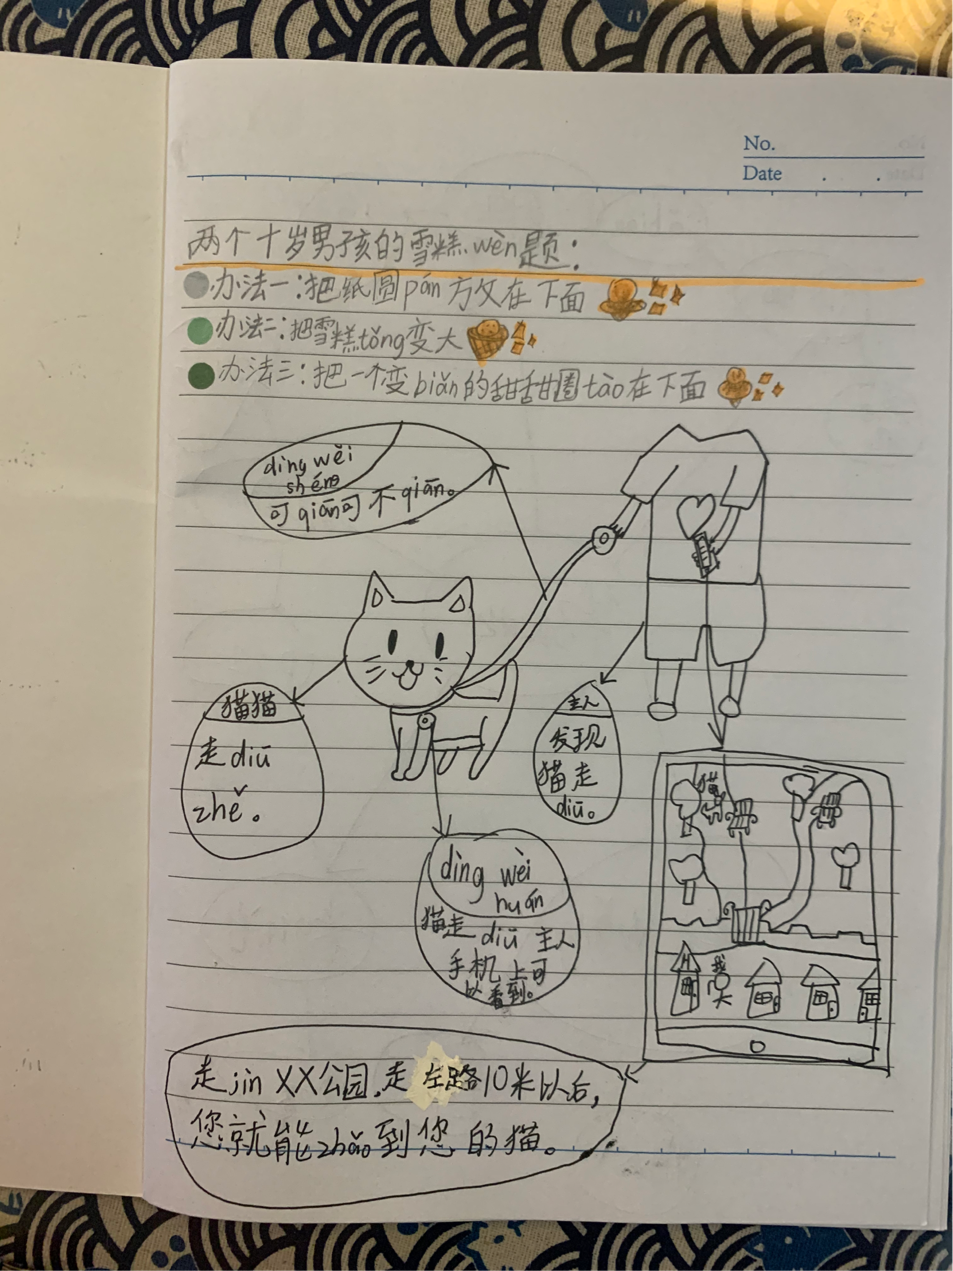 No.
Date
两个十岁男孩的雪糕wèn题:
办法一:把纸圆pán方攵在下面
办法二:把雪糕tǒng变大
办法三:把一个变biǎn的甜甜圈tào在下面
dìng wèi
shéng
可qiān可不qiān。
猫猫
走diū
zhě。
主人
发现
猫走
diū。
dìng wèi
huán
猫走diū主人
手机上可
以看到。
猫
我
走jìn XX公园,走左路10米以后,
您就能zhǎo到您的猫。